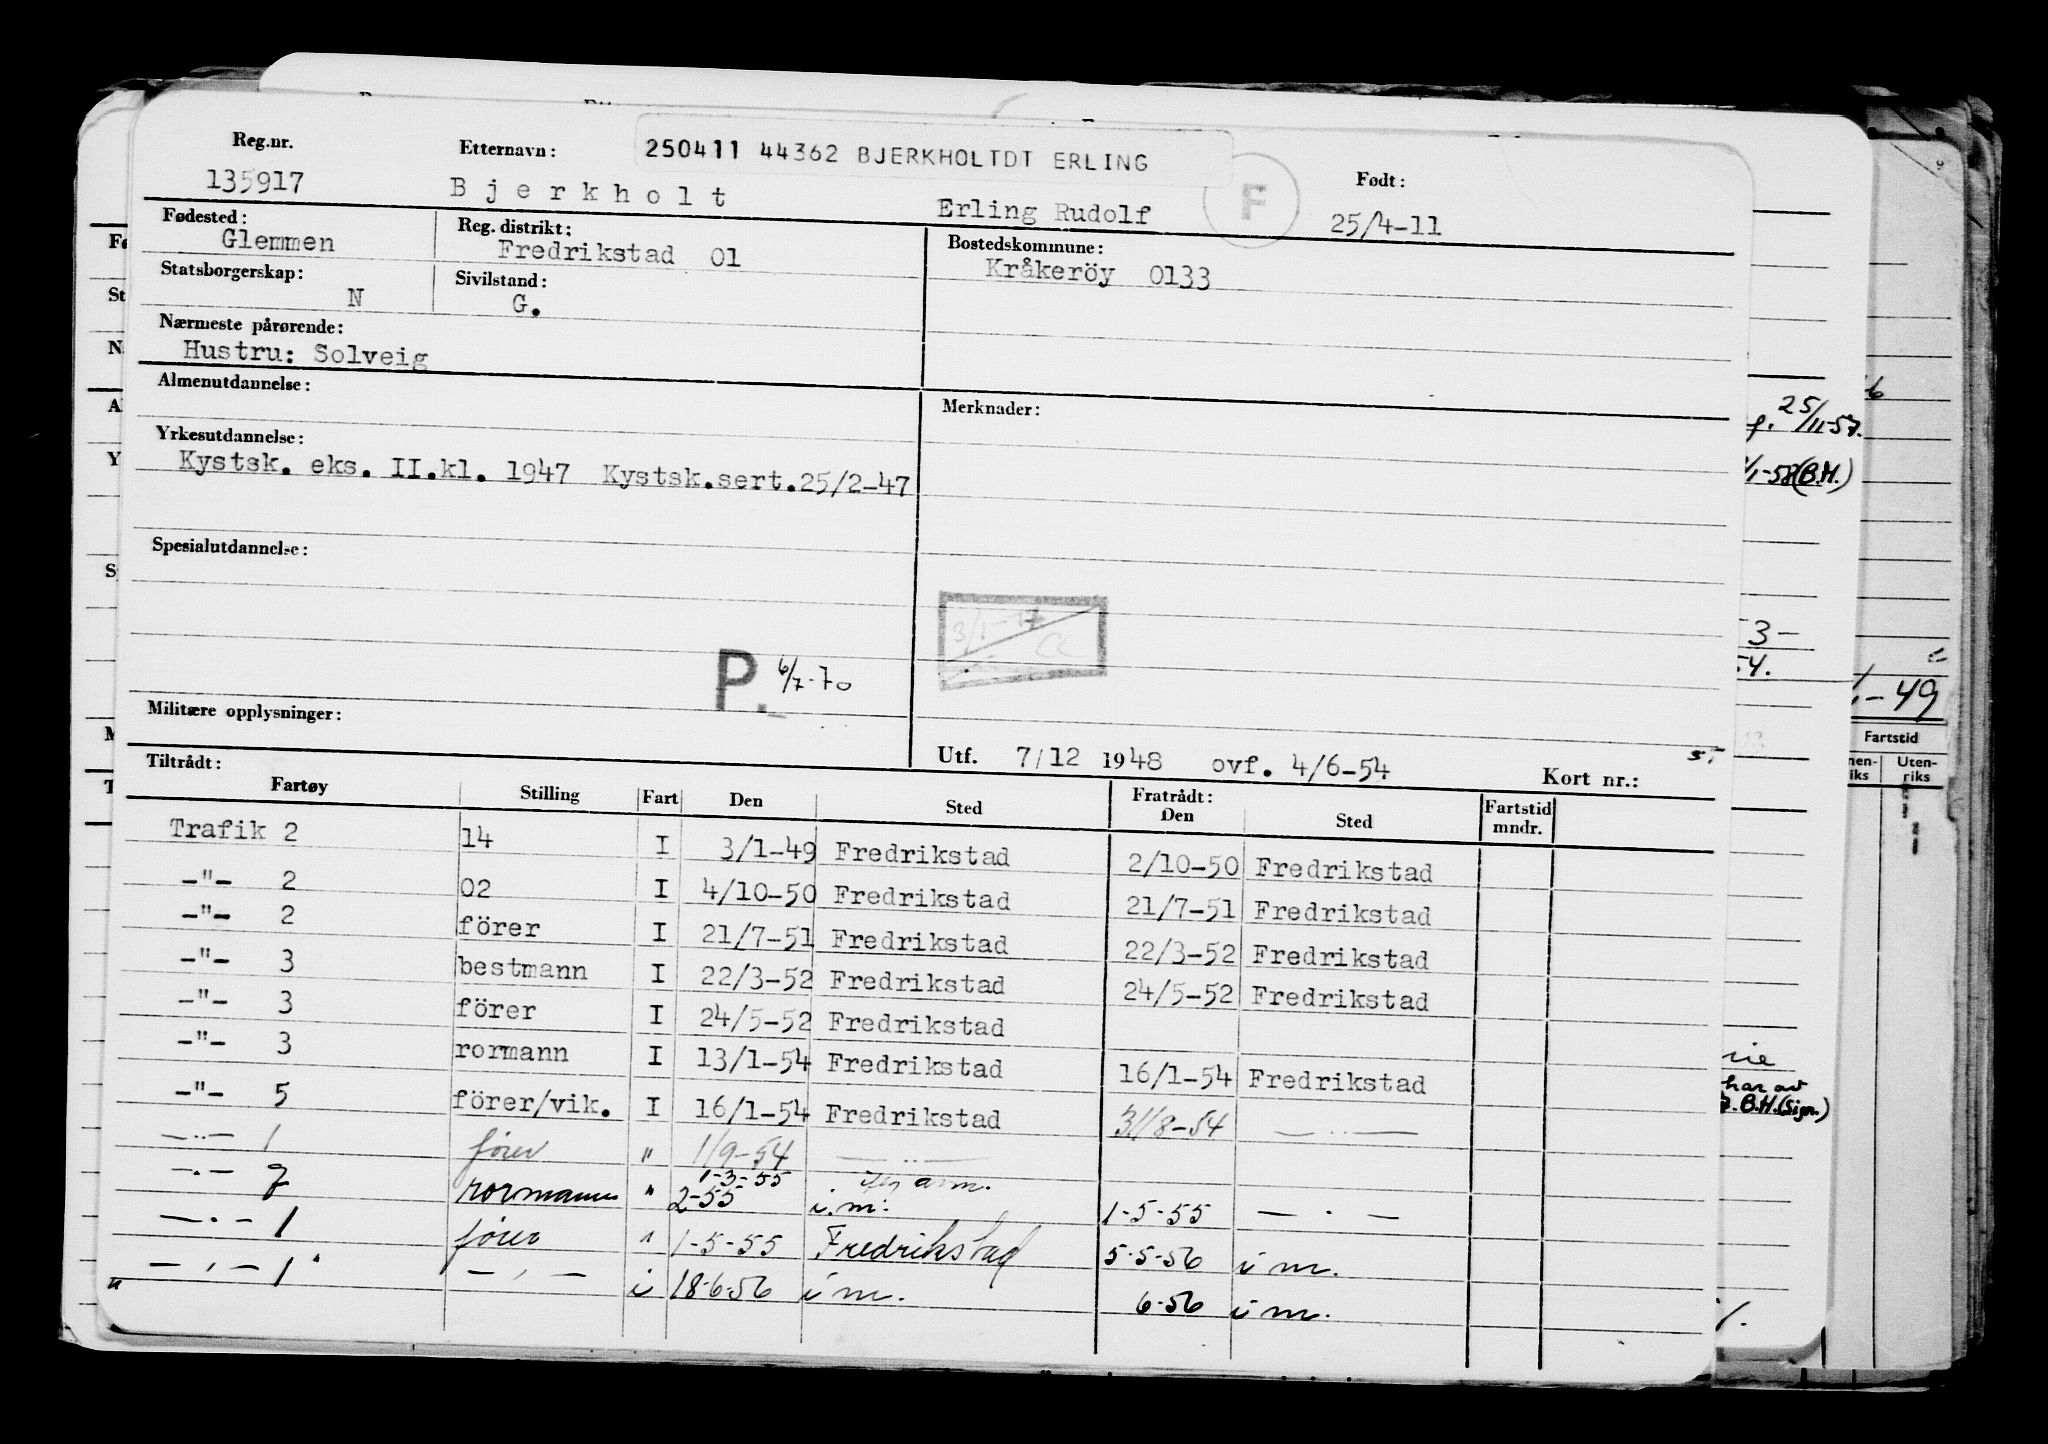 Reg.nr.
135917
Etternavn:
250411 44362 BJERKHOLTDT ERLING
Bjerkholt
Erling Rudolf
F
Født:
25/4-11
Fødested:
Glemmen
Reg. distrikt:
Fredrikstad 01
Bostedskommune:
Kråkeröy 0133
Statsborgerskap:
N
Sivilstand:
G.
Nærmeste pårørende:
Hustru: Solveig
Almenutdannelse:
Merknader:
Yrkesutdannelse:
Kystsk. eks. II.kl. 1947 Kystsk.sert.25/2-47
Spesialutdannelse:
P. 6/7-70
Militære opplysninger:
Utf. 7/12 1948 ovf. 4/6-54
Kort nr.:
Tiltrådt:
Fratrådt:
Fartøy Stilling Fart Den Sted Den Sted Fartstid mndr.
Trafik 2 14 I 3/1-49 Fredrikstad 2/10-50 Fredrikstad
-"- 2 02 I 4/10-50 Fredrikstad 21/7-51 Fredrikstad
-"- 2 förer I 21/7-51 Fredrikstad 22/3-52 Fredrikstad
-"- 3 bestmann I 22/3-52 Fredrikstad 24/5-52 Fredrikstad
-"- 3 förer I 24/5-52 Fredrikstad
-"- 3 rormann I 13/1-54 Fredrikstad 16/1-54 Fredrikstad
-"- 5 förer/vik. I 16/1-54 Fredrikstad 31/8-54 -"-
-"- 1 fører " 1/9-54 -"-
1-3-55
-"- 7 rormann " 2-55 i.m. 1-5-55 -"-
-"- 1 fører " 1-5-55 Fredrikstad 5-5-56 i m.
" -"- 1 -"- i 18-6-56 i m. 6-56 i m.
25/11-57.
1-58(B.H.)
3-
54.
-49
Fartstid
Uten-
riks
har av
B.H.(Sign.)